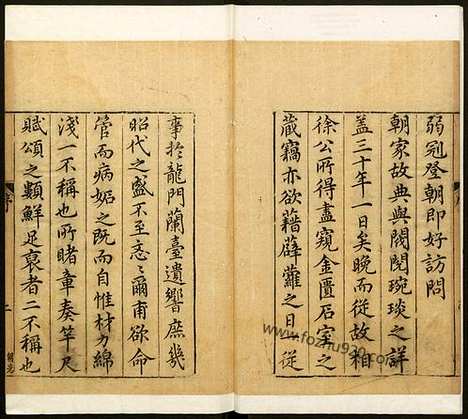 弱冠登朝即好訪問
朝家故典與閥閱琬琰之詳
蓋三十年一日矣晚而從故相
徐公所得盡窺金匱石室之
藏竊亦欲藉薜蘿之日一從
事於龍門蘭臺遺響庶幾
昭代之盛不至忞忞爾甫欲命
管而病妬之既而自惟材力綿
淺一不稱也所睹章奏竿尺
賦頌之類鮮足裒者二不稱也
序
二
www.fozhu920.com